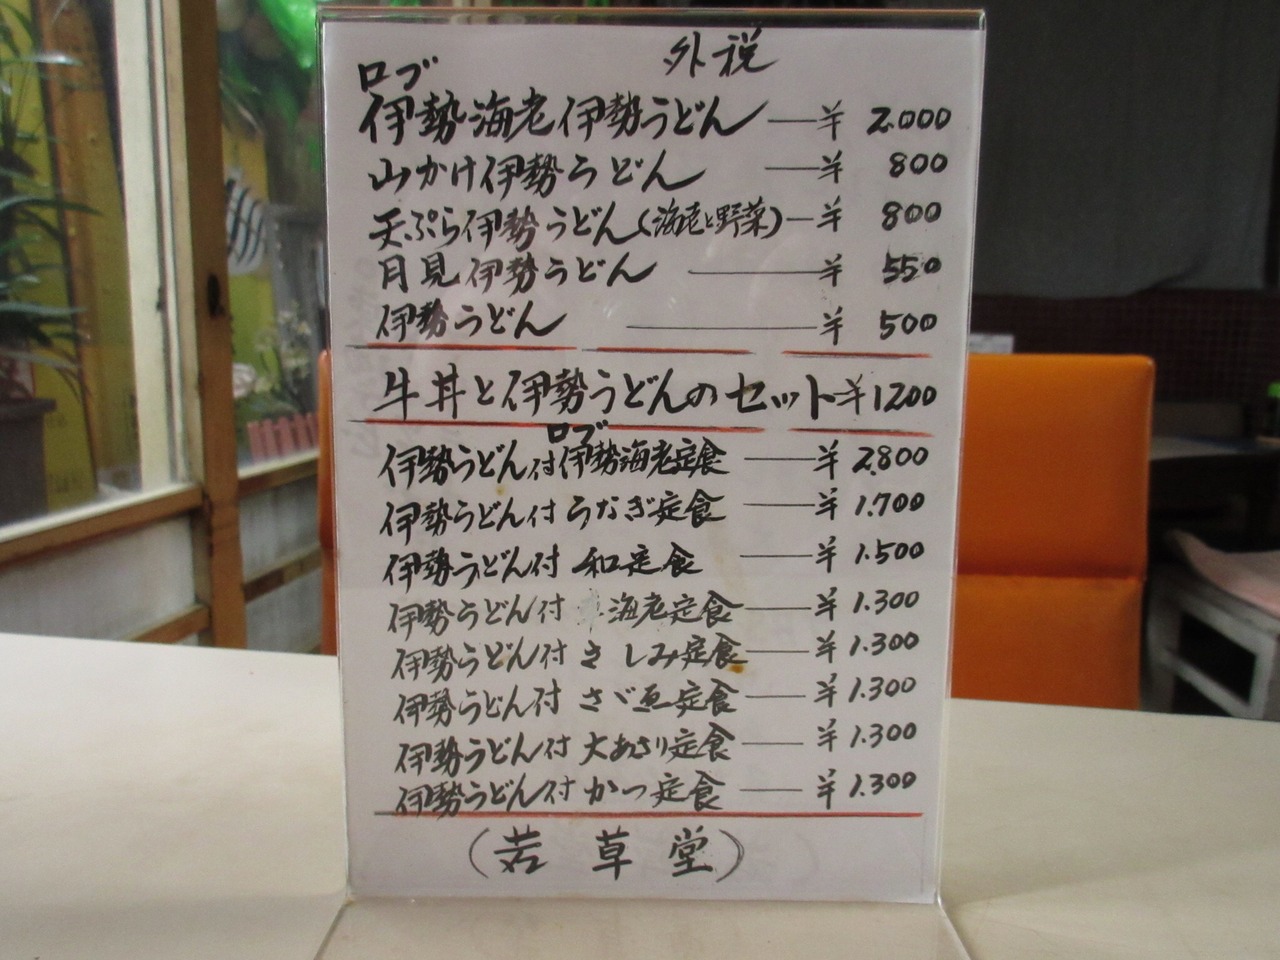 外税
ロブ
伊勢海老伊勢うどん ¥ 2.000
山かけ伊勢うどん ¥ 800
天ぷら伊勢うどん(海老と野菜) ¥ 800
月見伊勢うどん ¥ 550
伊勢うどん ¥ 500
牛丼と伊勢うどんのセット ¥1200
ロブ
伊勢うどん付伊勢海老定食 ¥ 2.800
伊勢うどん付うなぎ定食 ¥ 1.700
伊勢うどん付 和定食 ¥ 1.500
伊勢うどん付 海老定食 ¥ 1.300
伊勢うどん付 さしみ定食 ¥ 1.300
伊勢うどん付 さざゑ定食 ¥ 1.300
伊勢うどん付 大あさり定食 ¥ 1.300
伊勢うどん付 かつ定食 ¥ 1.300
(若草堂)